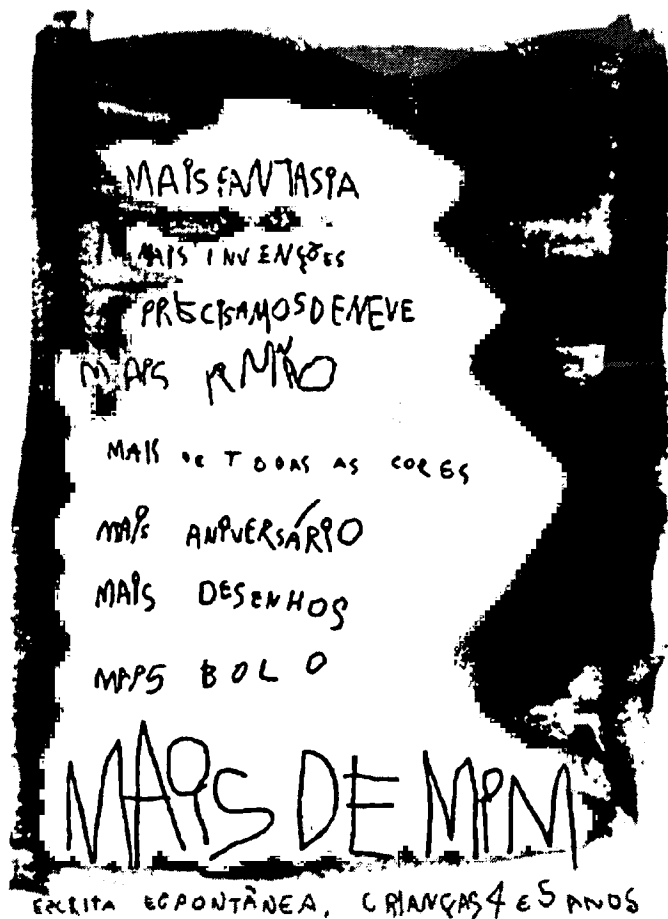 MAIS FANTASIA
MAIS INVENÇÕES
PRECISAMOS DE NEVE
MAIS
MAIS DE TODAS AS CORES
MAIS ANIVERSÁRIO
MAIS DESENHOS
MAIS BOLO
MAIS DE MIM
ESCRITA ESPONTÂNEA, CRIANÇAS 4 E 5 ANOS